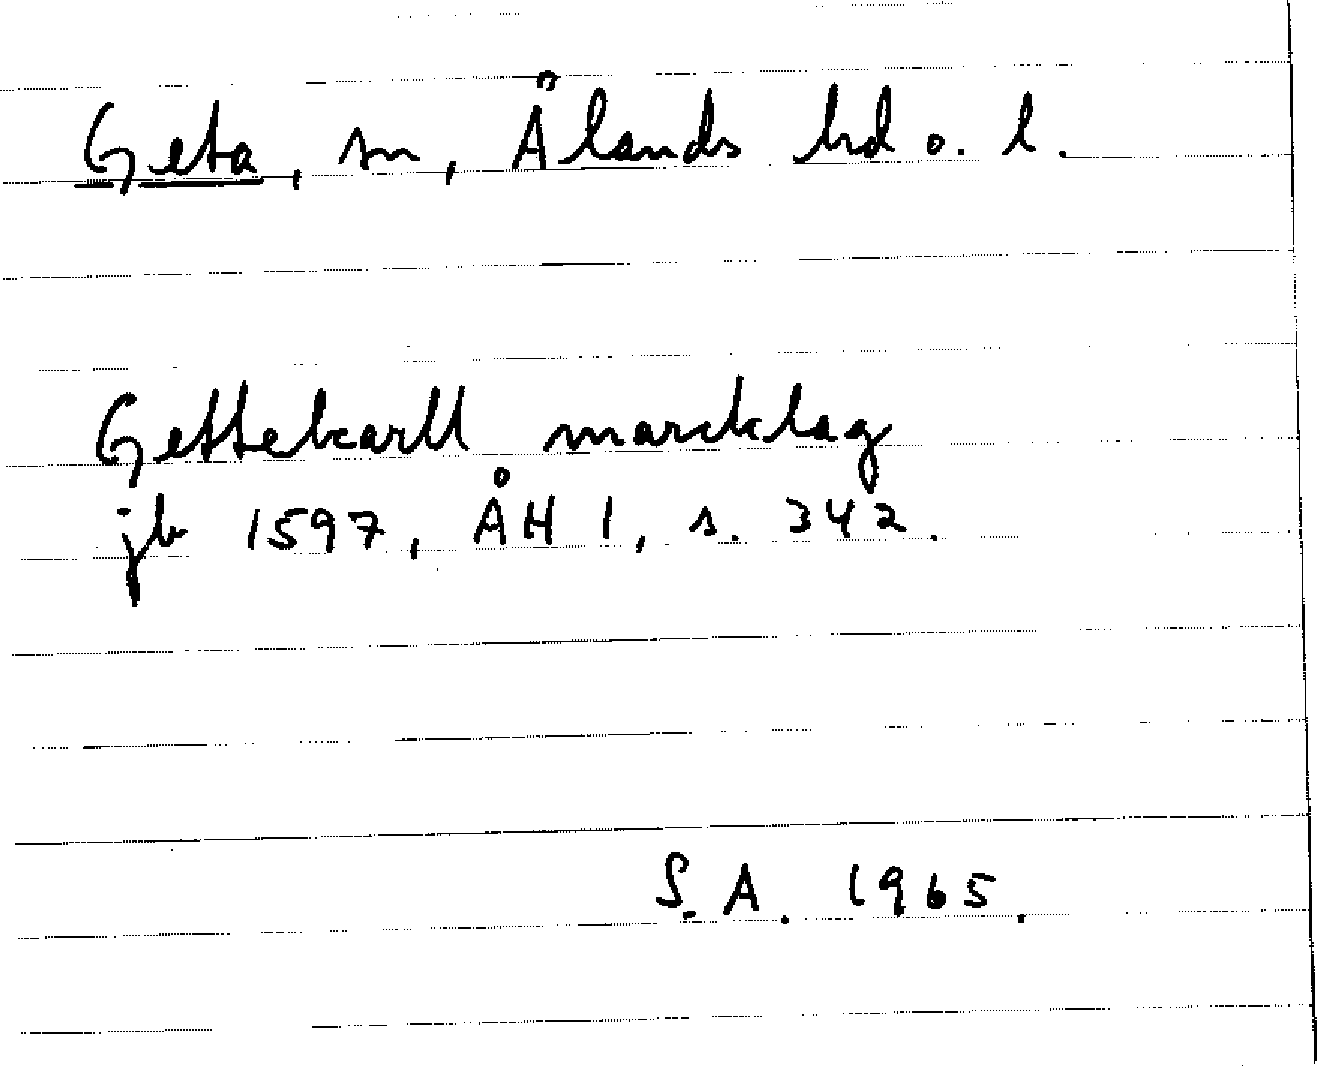 Geta, sn, Ålands hd o. l.
Gettekarll marcklag
jb 1597, ÅH 1, s. 342.
S. A. 1965.